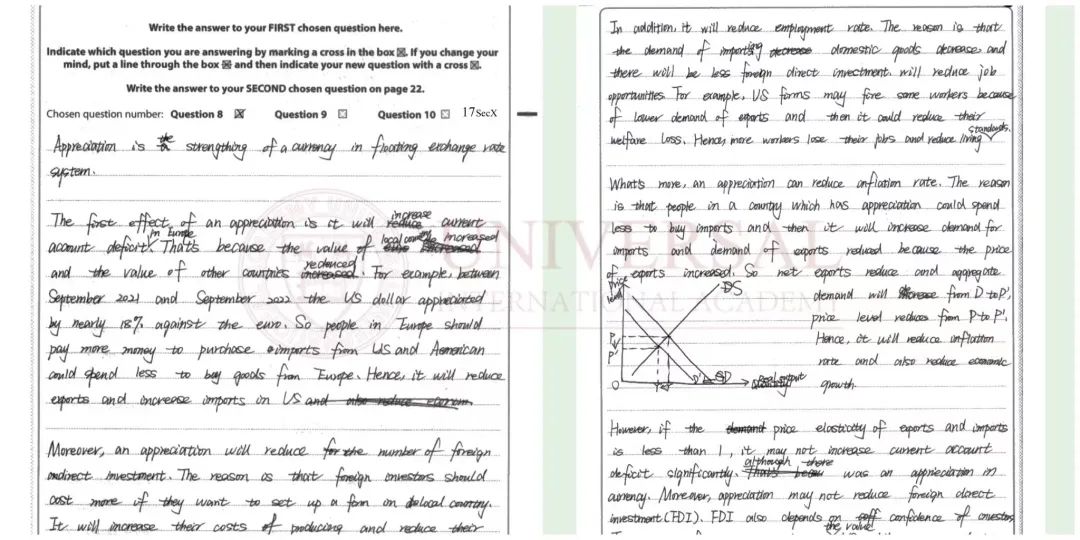 Write the answer to your FIRST chosen question here.
Indicate which question you are answering by marking a cross in the box ☒. If you change your
mind, put a line through the box ☒ and then indicate your new question with a cross ☒.
Write the answer to your SECOND chosen question on page 22.
Chosen question number: Question 8 ☒ Question 9 ☐ Question 10 ☐ 17SecX
Appreciation is the strengthing of a currency in floating exchange rate
system.
The first effect of an appreciation is it will increase current
account deficit in Europe. That's because the value of local country increased
and the value of other countries reduced. For example, between
September 2021 and September 2022 the US dollar appreciated
by nearly 18% against the euro. So people in Europe should
pay more money to purchase imports from US and American
could spend less to buy goods from Europe. Hence, it will reduce
exports and increase imports in US and also reduce econom
Moreover, an appreciation will reduce the number of foreign
indirect investment. The reason is that foreign investors should
cost more if they want to set up a firm in local country.
It will increase their costs of producing and reduce their
In addition, it will reduce employment rate. The reason is that
the demand of importing domestic goods decrease, and
there will be less foreign direct investment. will reduce job
opportunities. For example, US firms may fire some workers because
of lower demand of exports and then it could reduce their
welfare loss. Hence, more workers lose their jobs and reduce living standards.
What's more, an appreciation can reduce inflation rate. The reason
is that people in a country which has appreciation could spend
less to buy imports and then it will increase demand for
imports and demand of exports reduced because the price
of exports increased. So net exports reduce and aggregate
demand will from D to D',
price level reduces from P to P'.
Hence, it will reduce inflation
rate and also reduce economic
growth.
Price
level
DS
P
P'
O
D'
Real output
However, if the price elasticity of exports and imports
is less than 1, it may not increase current account
deficit significantly. although there was an appreciation in
currency. Moreover, appreciation may not reduce foreign direct
investment (FDI). FDI also depends on confidence of investors
the value
UNIVERSAL
INTERNATIONAL ACADEMY